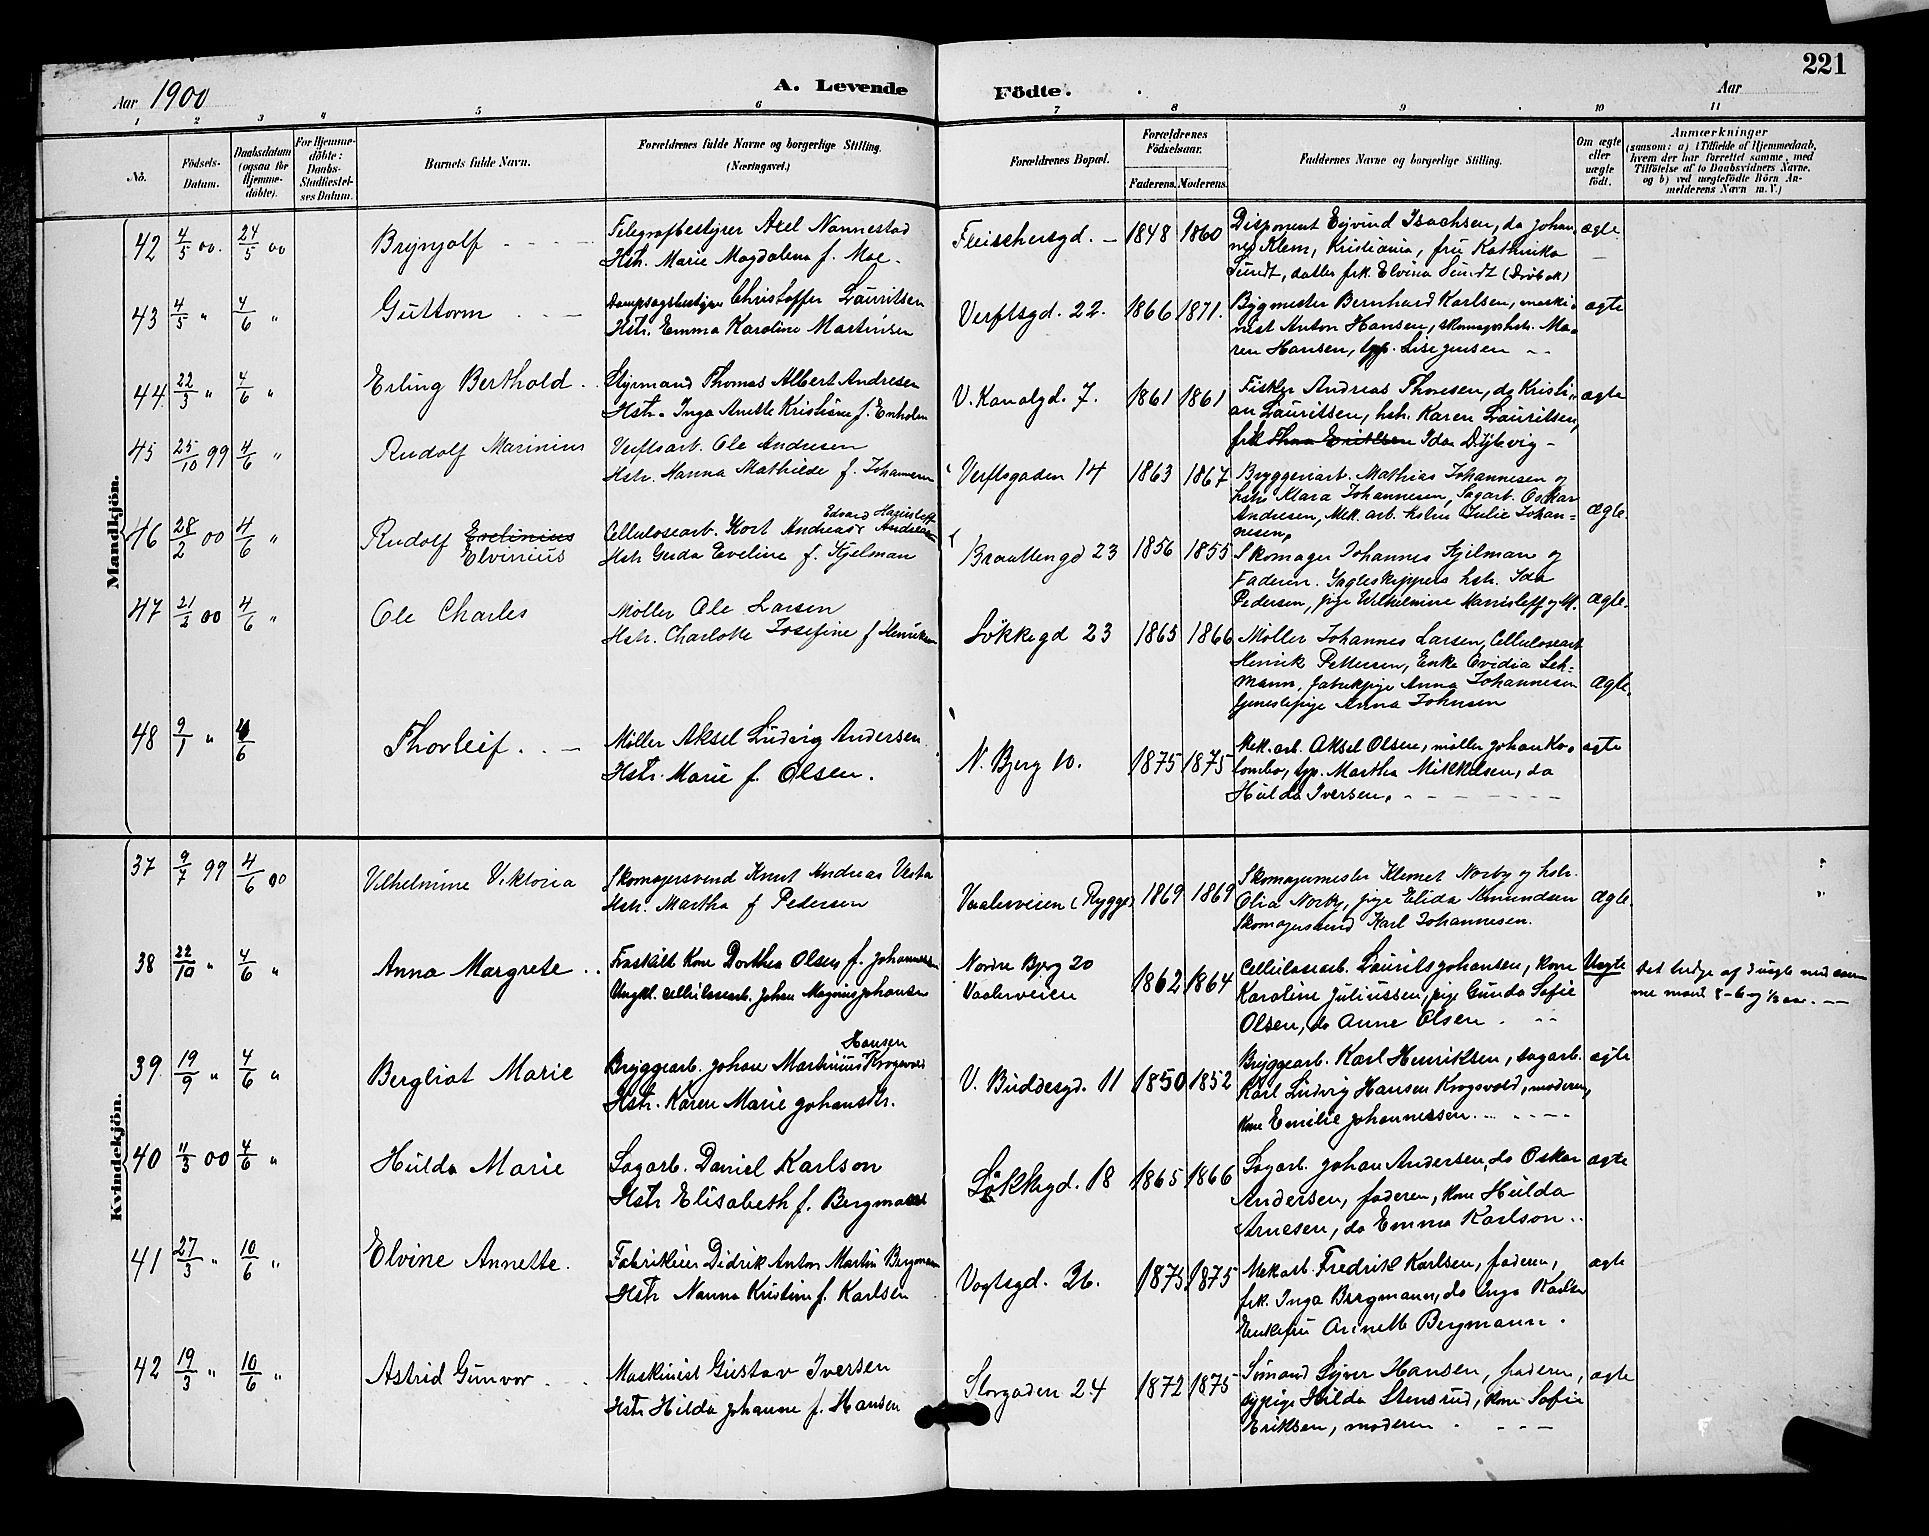 221
Aar 1900
A. Levende
Födte.
Aar
1 2 3 4 5 6 7 8 9 10 11
No.
Födsels-Datum.
Daabsdatum (ogsaa for Hjemme-döbte).
For Hjemme-döbte: Daabs-Stadfæstel-ses Datum.
Barnets fulde Navn.
Forældrenes fulde Navne og borgerlige Stilling. (Næringsvei.)
Forældrenes Bopæl.
Forældrenes Födselsaar.
Faderens. Moderens.
Faddernes Navne og borgerlige Stilling.
Om ægte eller uægte født.
Anmærkninger
(saasom: a) i Tilfælde af Hjemmedaab,
hvem der har forrettet samme, med
Tilföielse af to Daabsvidners Navne,
og b) ved uægtefödte Börn An-
melderens Navn m. V.)
Mandkjön.
42 4/5 00. 24/5 00 Brynjolf
Telegrafbestyrer Axel Nannestad
Hstr. Marie Magdalena f. Moe
Fleischersgd. 1848 1860
Disponent Eyvind Isachsen, do Johan
nes Klem, Kristiania, fru Kathrinka
Sundt, datter frk. Elvina Sundt (Drøbak)
ægte
43 4/5 " 4/6 " Guttorm
Dampsagbestyrer Christoffer Lauritsen
Hstr. Emma Karoline Martinsen
Verftsgd. 22. 1866 1871.
Bygmester Bernhard Karlsen, maski-
nist Anton Hansen, skomagerhstr. Ma-
ren Hansen, typ. Lise Jensen
ægte
44 22/3 " 4/6 " Erling Berthold
Styrmand Thomas Albert Andresen
Hstr. Inga Anette Kristine f. Enholm
V. Kanalgd. 7. 1861 1861
Fisker Andreas Thoresen, do Kristi-
an Lauritsen, hstr. Karen Lauritsen,
frk. Ida Dybvig
ægte
45 25/10 99 4/6 " Rudolf Marinius
Verftsarb. Ole Andresen
Hstr. Nanna Mathilde f. Johannesen
Verftsgaden 14 1863 1867
Bryggeriarb. Mathias Johannesen og
hstr Klara Johannesen, Sagarb. Oskar
Andresen, Mek. arb. hstru Julie Johan-
nesen,
ægte
46 28/2 00 4/6 " Rudolf Evelinius
Elvinius
Edvard Harisleff
Cellulosearb. Kort Andreas Andresen
Hstr Gerda Eveline f. Kjelman
Braattengd 23 1856 1855
Skomager Johannes Kjelman og
Faderen. Jagteskippers hstr. Ida
Pedersen, pige Wilhelmine Harrisleff og M.
ægte.
47 21/2 00 4/6 " Ole Charles
Møller Ole Larsen
Hstr. Charlotte Josefine f Henriksen
Løkkegd 23 1865 1866
Møller Johannes Larsen, Cellulosearb
Henrik Pettersen, Enke Ovidia Leh-
mann, fabrikpige Anna Johannesen
tjenestepige Anna Johnsen
ægte.
48 9/1 " 4/6 Thorleif
Møller Aksel Ludvig Andersen
Hstr. Marie f. Olsen.
N. Bjerg 10. 1875 1875
Mek. arb. Aksel Olsen, møller Johan Ko-
lombo, typ. Martha Mikkelsen, do
Hulda Iversen.
ægte
Kvindekjön.
37 9/7 99 4/6 00 Vilhelmine Viktoria
Skomagersvend Knut Andreas Vestu
Hstr. Martha f Pedersen
Vaalerveien (Rygge) 1869 1869
Skomagermester Klemet Norby og hstr.
Olia Norby, pige Elida Amundsen
Skomagersvend Karl Johannesen.
ægte.
38 22/10 " 4/6 " Anna Margrete
Fraskilt Kone Dorthea Olsen f. Johannessen
Ungkl. cellulosearb. Johan Magnus Johansen
Nordre Bjerg 20
Vaalerveien
1862 1864
Cellulosearb. Laurits Johansen, kone
Karoline Juliussen, pige Gunda Sofie
Olsen, do Anne Olsen.
Uægte
Det tredje af 3 uægte med sam-
me mand 8-6-og ½ aar.
39 19/9 " 4/6 " Bergliot Marie
Hansen
Bryggearb. Johan Martinius Krogsvold
Hstr. Karen Marie Johansdr.
V. Buddesgd. 11 1850 1852
Bryggearb. Karl Henriksen, sagarb.
Karl Ludvig Hansen Krogsvold, moderen,
kone Emilie Johannessen.
ægte
40 11/3 00 4/6 " Hulda Marie
Sagarb. Daniel Karlson
Hstr Elisabeth f. Bergman
Løkkegd. 18 1865 1866
Sagarb. Johan Andersen, do Oskar
Andersen, faderen, kone Hulda
Arnesen, do Emma Karlson.
ægte
41 27/3 " 10/6 " Elvine Annette.
Fabrikeier Didrik Anton Martin Bergmann
Hstr Nanna Kristine f. Karlsen
Vogtsgd. 36. 1875 1875
Mekarb. Fredrik Karlsen, faderen,
frk. Inga Bergmann, do Inga Karlsen
Enkefru Annette Bergmann.
ægte
42 19/3 " 10/6 " Astrid Gunvor
Maskinist Gustav Iversen
Hstr Hilda Johanne f. Hansen
Storgaden 24 1872 1875
Sømand Syver Hansen, faderen,
sypige Hilda Stensrud, kone Sofie
Eriksen, moderen
ægte